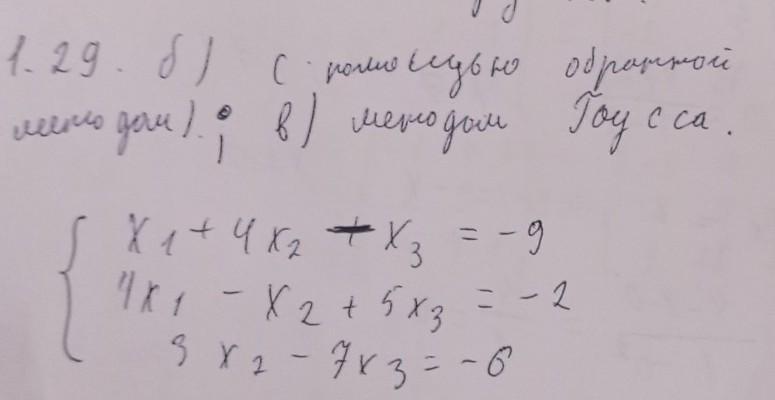 1.29. б) с помощью обратной
методом).; в) методом Гаусса.
x1 + 4x2 - x3 = -9
4x1 - x2 + 5x3 = -2
3x2 - 7x3 = -6